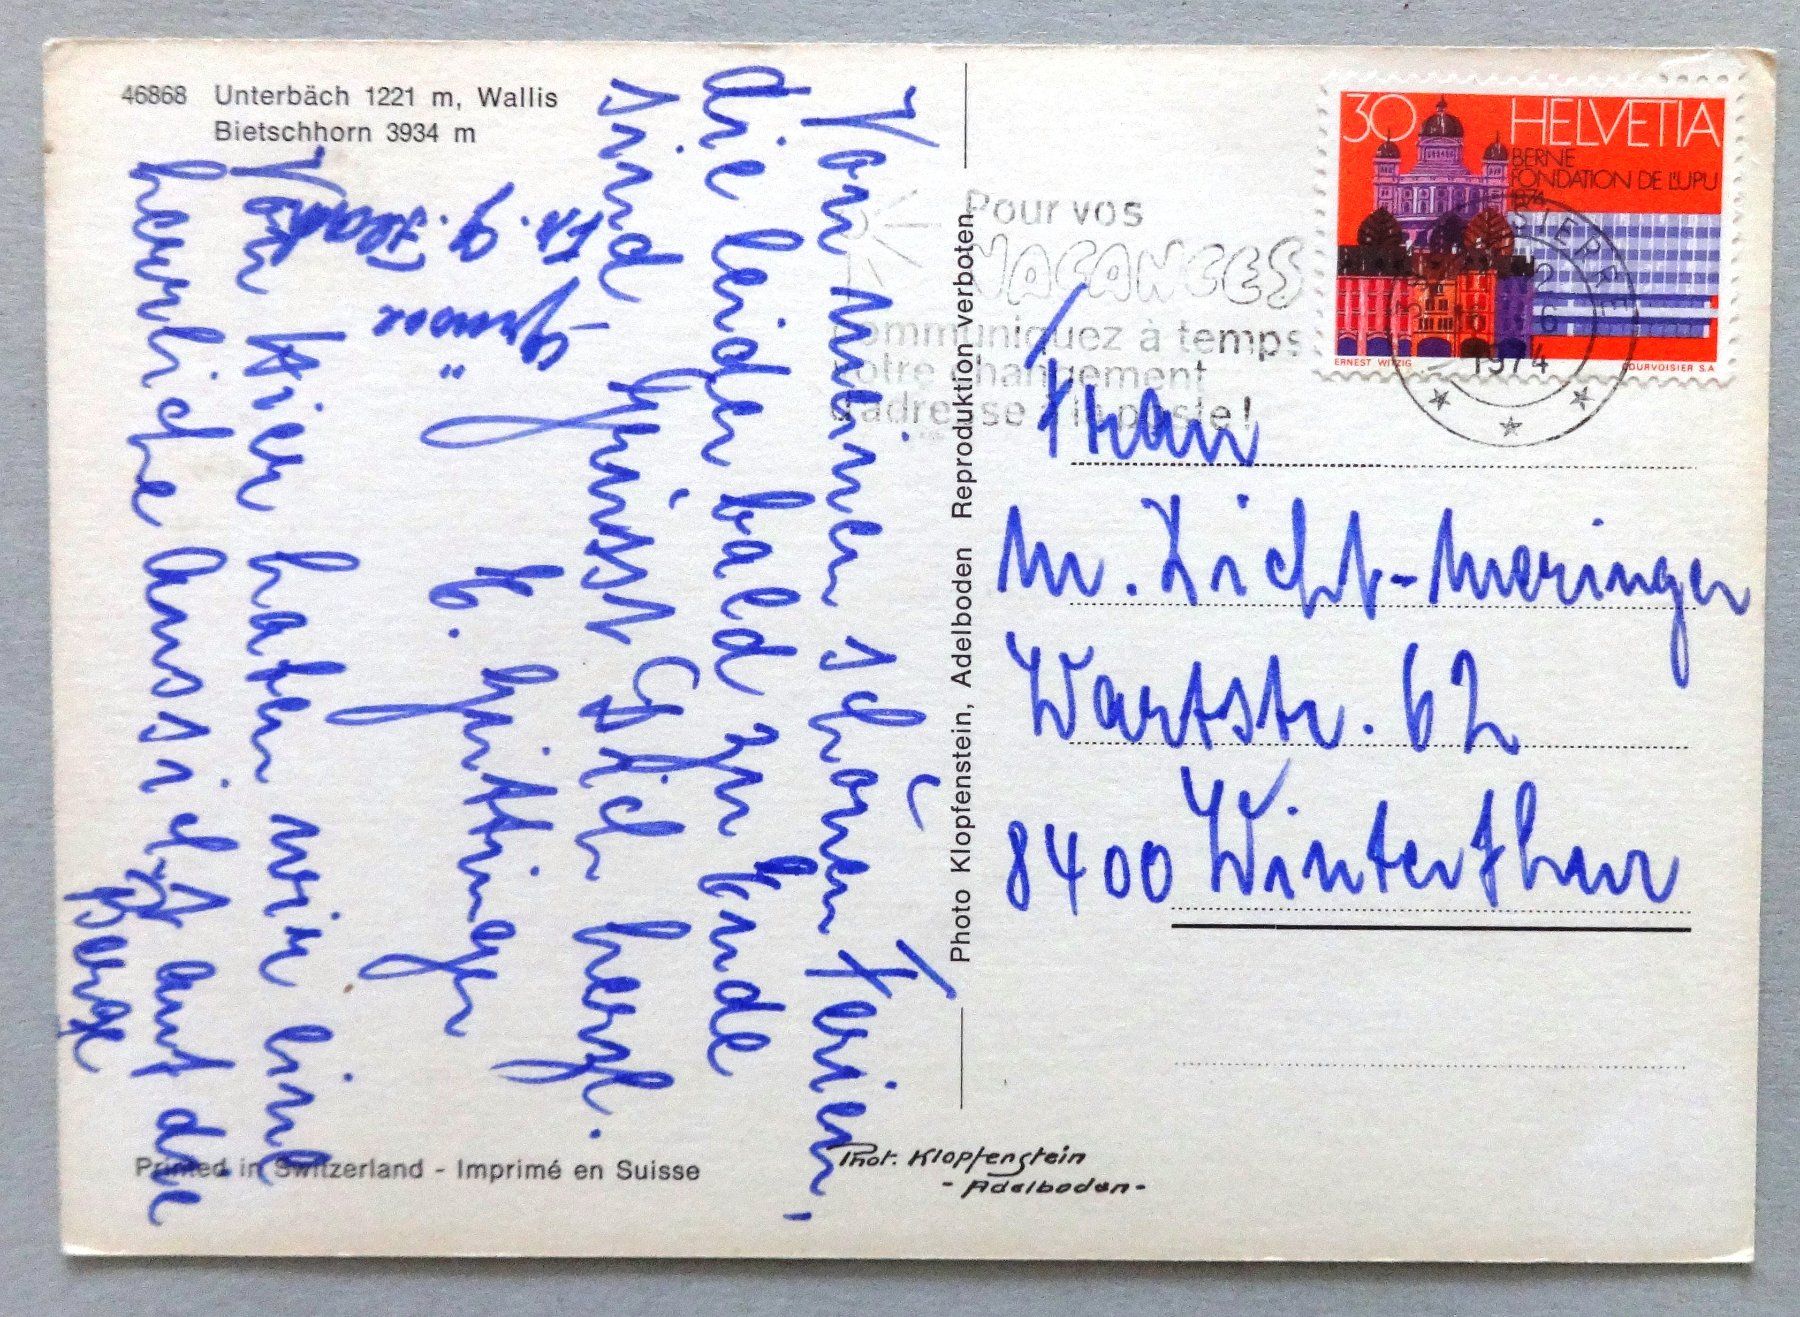 46868 Unterbäch 1221 m, Wallis
Bietschhorn 3934 m
Von meinen schönen Ferien,
die leider bald zu Ende
sind grüsst Sie herzl.
E. Gyttinger
Von hier haben wir eine
herrliche Aussicht auf die
Berge
Photo Klopfenstein, Adelboden Reproduktion verboten
Pour vos
VACANCES
communiquez à temps
votre changement
d'adresse à la poste!
30 HELVETIA
BERNE
FONDATION DE L'UPU
1974
ERNEST WITZIG COURVOISIER S.A
SIERRE
1974
Frau
M. Licht-Meringer
Wartstr. 62
8400 Winterthur
Printed in Switzerland - Imprimé en Suisse
Phot. Klopfenstein
- Adelboden -